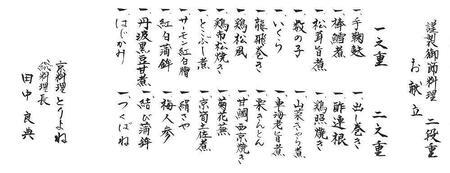 謹製御節料理 二段重
お献立
一之重
一 手鞠麩
一 棒鱈煮
一 松茸旨煮
一 数の子
一 いくら
一 龍飛巻き
一 鶏松風
一 鶏市松焼き
一 とこぶし煮
一 サーモン紅白膾
一 紅白蒲鉾
一 丹波黒豆甘煮
一 はじかみ
二之重
一 出し巻き
一 酢蓮根
一 鶏照焼き
一 山家きゃら煮
一 車海老旨煮
一 栗きんとん
一 甘鯛西京焼き
一 菊花蕪
一 京筍土佐煮
一 絹さや
一 梅人参
一 結び蒲鉾
一 つくばね
京料理とりよね
総料理長
田中良典